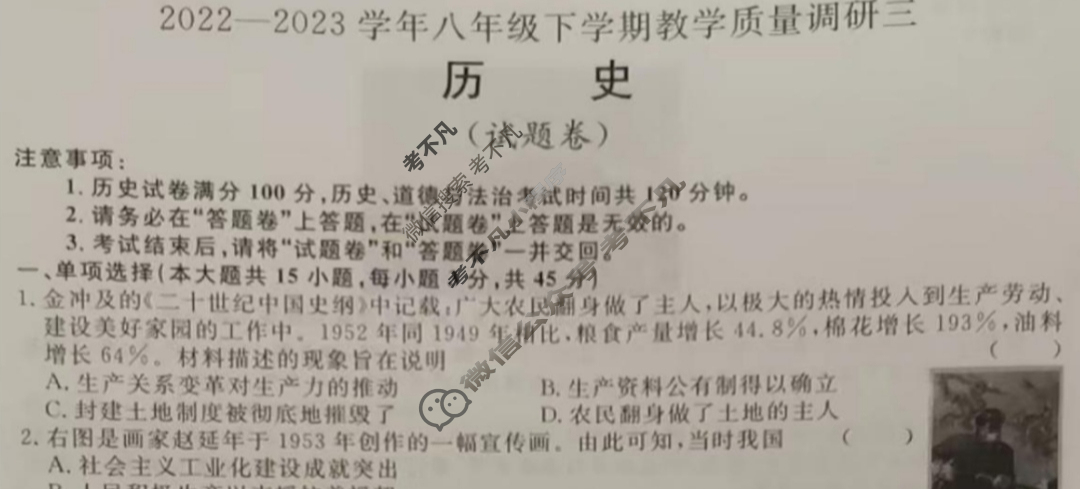 2022—2023 学年八年级下学期教学质量调研三
历 史
(试题卷)
注意事项:
1. 历史试卷满分 100 分,历史、道德与法治考试时间共 120 分钟。
2. 请务必在“答题卷”上答题,在“试题卷”上答题是无效的。
3. 考试结束后,请将“试题卷”和“答题卷”一并交回。
一、单项选择(本大题共 15 小题,每小题 3 分,共 45 分)
1. 金冲及的《二十世纪中国史纲》中记载:广大农民翻身做了主人,以极大的热情投入到生产劳动、
建设美好家园的工作中。1952 年同 1949 年相比,粮食产量增长 44.8%,棉花增长 193%,油料
增长 64%。材料描述的现象旨在说明 ( )
A. 生产关系变革对生产力的推动 B. 生产资料公有制得以确立
C. 封建土地制度被彻底地摧毁了 D. 农民翻身做了土地的主人
2. 右图是画家赵延年于 1953 年创作的一幅宣传画。由此可知,当时我国 ( )
A. 社会主义工业化建设成就突出
考不凡
微信搜索 考不凡